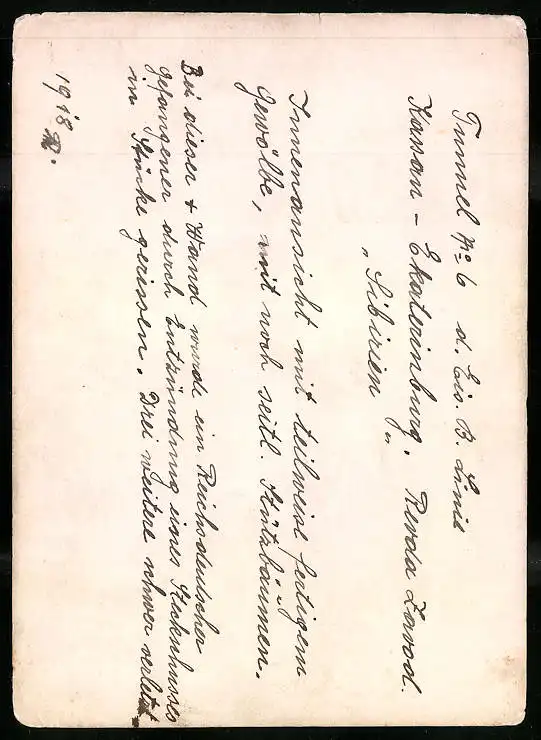 Tunnel No 6 d. Eis. B. Linie
Kasan - Ekaterinburg. Revda Zavod.
„Sibirien"
Innenansicht mit teilweise fertigem
Gewölbe, mit noch seitl. Stützbäumen.
Bei dieser + Wand wurde ein Reichsdeutscher
gefangener durch Entzündung eines
in Stücke gerissen. Drei weitere schwer verletzt
1918